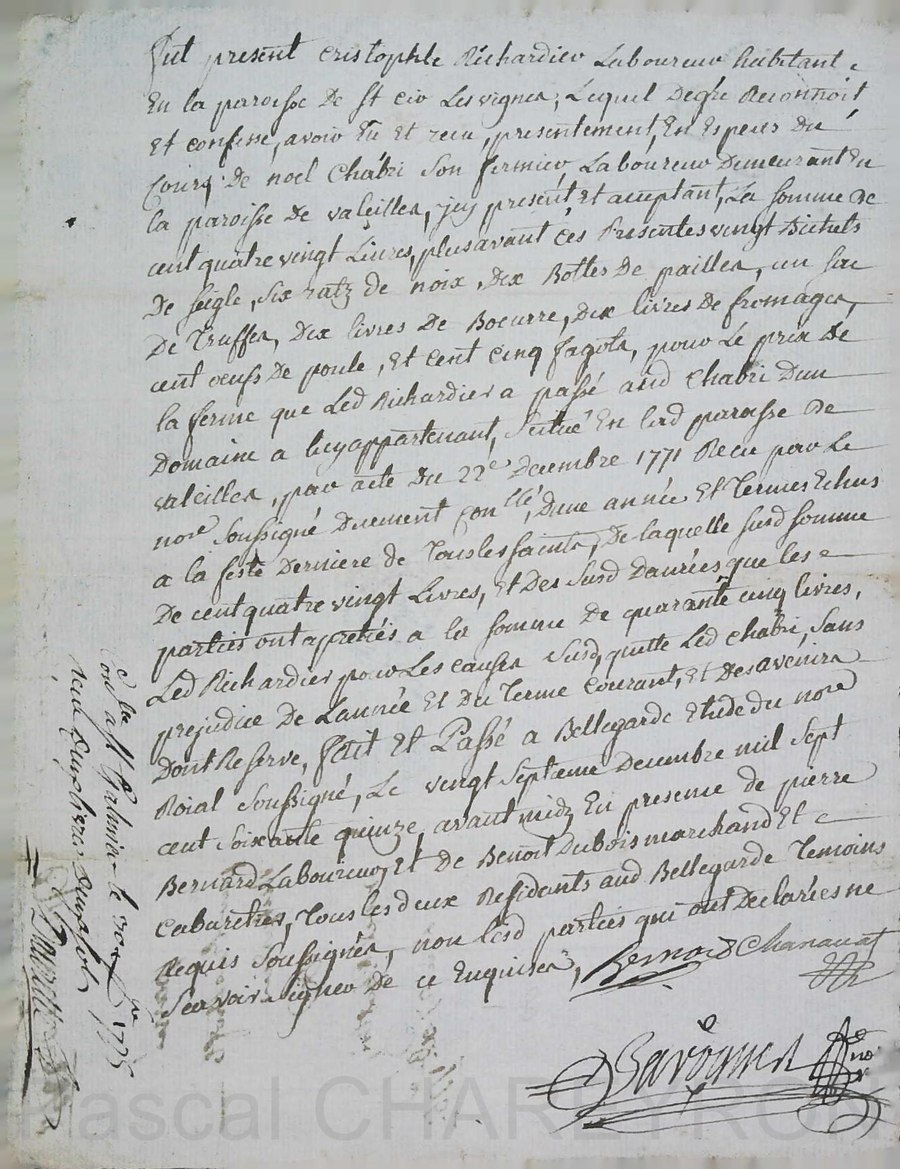 Fut présent Cristophle Richardier Laboureur habitant
En la paroisse De st Cir Les vignes, Lequel Degré Reconnoit
Et confesse, avoir Eu et receu, presentement, En Especes Du
Cours, De noel Chabri son fermier, Laboureur Demeurant En
la paroisse De valeilles, jcy present et acceptant, La somme De
cent quatre vingt Livres, plus avant ces Presentes vingt Bichets
De seigle, six ratz de noix, Dix Bottes De pailles, un sac
De Truffes, Dix livres De Boeurre, Dix livres De fromages,
cent oeufs De poule, Et cent cinq fagots, pour Le prix De
la ferme que Led Richardier a passé aud Chabri Dun
Domaine a luy appartenant, situé En lad paroisse De
valeilles, par acte Du 22e Decembre 1771 Receu par Le
nore soussigné Duement Con.llé, Dune année Et Termes Echus
a la feste Derniere de Tous les saints, De laquelle susd somme
De cent quatre vingt Livres, Et Des susd Danrées que les
parties ont appretiés a la somme De quarante cinq livres,
Led Richardier pour Les causes susd, quitte Led Chabri, sans
prejudice De Lannée Et Du Terme Courant, Et Des avenirs
Dont Reserve, fait Et Passé a Bellegarde Etude Du nore
Roial soussigné, Le vingt septeme Decembre mil sept
cent soixante quinze, avant midy En presence de pierre
Bernard Laboureur, Et De Benoit Dubois marchand Et
Cabaretier, Tous les deux Residents aud Bellegarde Temoins
Requis soussignés, non lesd parties qui ont Declarées ne
scavoir signer De ce Enquises,
Bernard Chanavat
nore
Con.llé a st Galmier le
1775
Receu